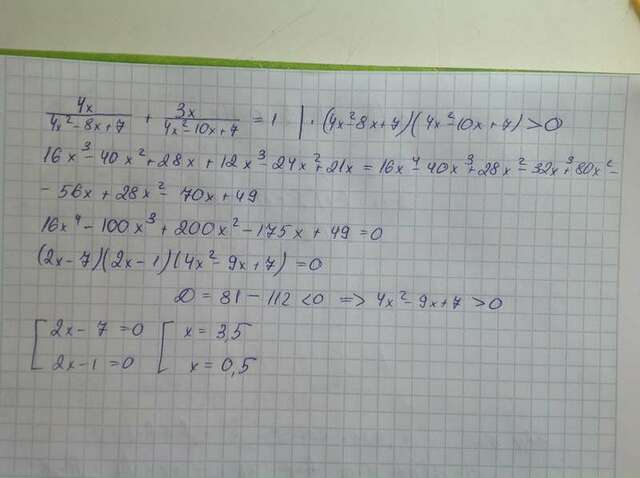 4x/(4x²-8x+7) + 3x/(4x²-10x+7) = 1 | · (4x²8x+7)(4x²-10x+7) > 0
16x³-40x²+28x+12x³-24x²+21x = 16x⁴-40x³+28x²-32x³+80x²-
- 56x + 28x² - 70x + 49
16x⁴ - 100x³ + 200x² - 175x + 49 = 0
(2x-7)(2x-1)(4x²-9x+7) = 0
D = 81 - 112 < 0 => 4x²-9x+7 > 0
[ 2x-7 = 0 [ x = 3,5
2x-1 = 0 x = 0,5